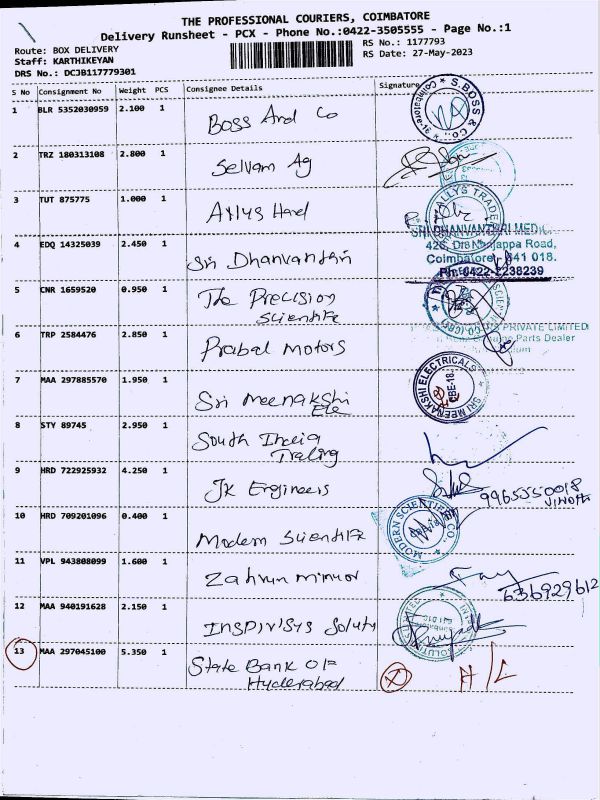 THE PROFESSIONAL COURIERS, COIMBATORE
Delivery Runsheet - PCX - Phone No.:0422-3505555 - Page No.:1
Route: BOX DELIVERY
RS No.: 1177793
Staff: KARTHIKEYAN
RS Date: 27-May-2023
DRS No.: DCJB117779301
S No Consignment No Weight PCS Consignee Details Signature
1 BLR 5352030959 2.100 1 Boss And Co
S. BOSS & CO. Coimbatore-18
2 TRZ 180313108 2.800 1 Selvam Ag
3 TUT 875775 1.000 1 Allys Hard
ALLYS TRADERS
4 EDQ 14325039 2.450 1 Sri Dhanvantari
SRI DHANVANTHRI MEDIC
Coimbatore - 641 018.
Ph: 0422-2238239
5 CNR 1659520 0.950 1 The Precision
Scientific
6 TRP 2584476 2.850 1 Prabal Motors
PRIVATE LIMITED
Parts Dealer
7 MAA 297885570 1.950 1 Sri Meenakshi
Ele
SRI MEENAKSHI ELECTRICALS CBE-18.
8 STY 89745 2.950 1 South India
Trading
9 HRD 722925932 4.250 1 JK Engineers
9965550018
VINOTH
10 HRD 709201096 0.400 1 Modern Scientific
MODERN SCIENTIFIC CO.
11 VPL 943808099 1.600 1
636929612
12 MAA 940191628 2.150 1 Inspirisys Soluti
13 MAA 297045100 5.350 1 State Bank OF
Hyderabad
A/C